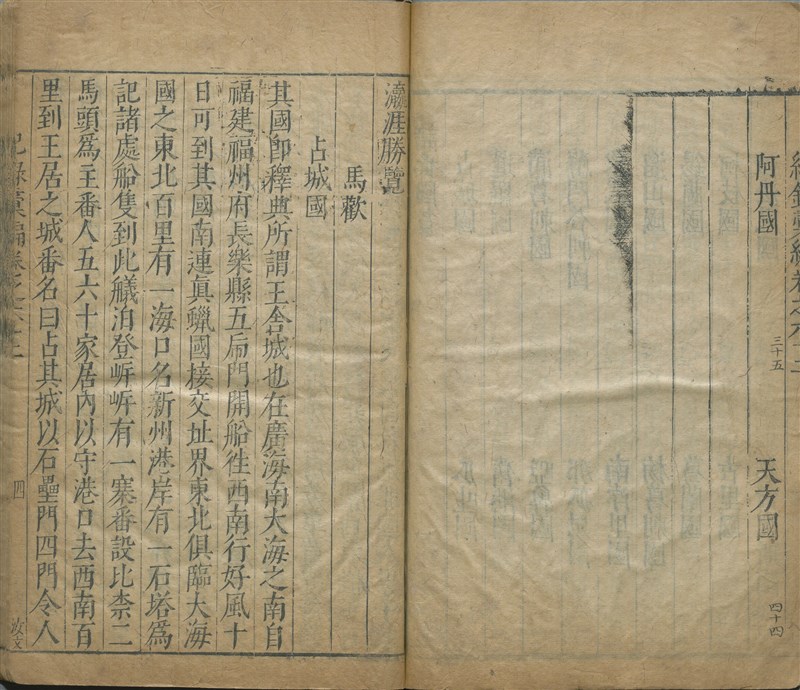 阿丹國 三十五 天方國 四十四
瀛涯勝覽
馬歡
占城國
其國卽釋典所謂王舍城也在廣海南大海之南自
福建福州府長樂縣五虎門開船徃西南行好風十
日可到其國南連眞臘國接交址界東北俱臨大海
國之東北百里有一海口名新州港岸有一石塔爲
記諸處船隻到此艤泊登岍岍有一寨番設比柰二
馬頭爲主番人五六十家居內以守港口去西南百
里到王居之城番名曰占其城以石壘門四門令人
紀錄彙編卷之六十二 四